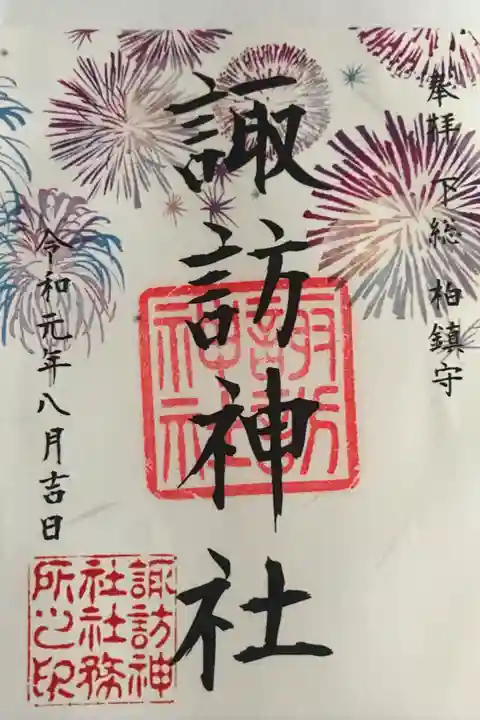 奉拝 下総 柏鎮守
諏訪神社
諏訪神社
令和元年八月吉日
諏訪神
社社務
所之印